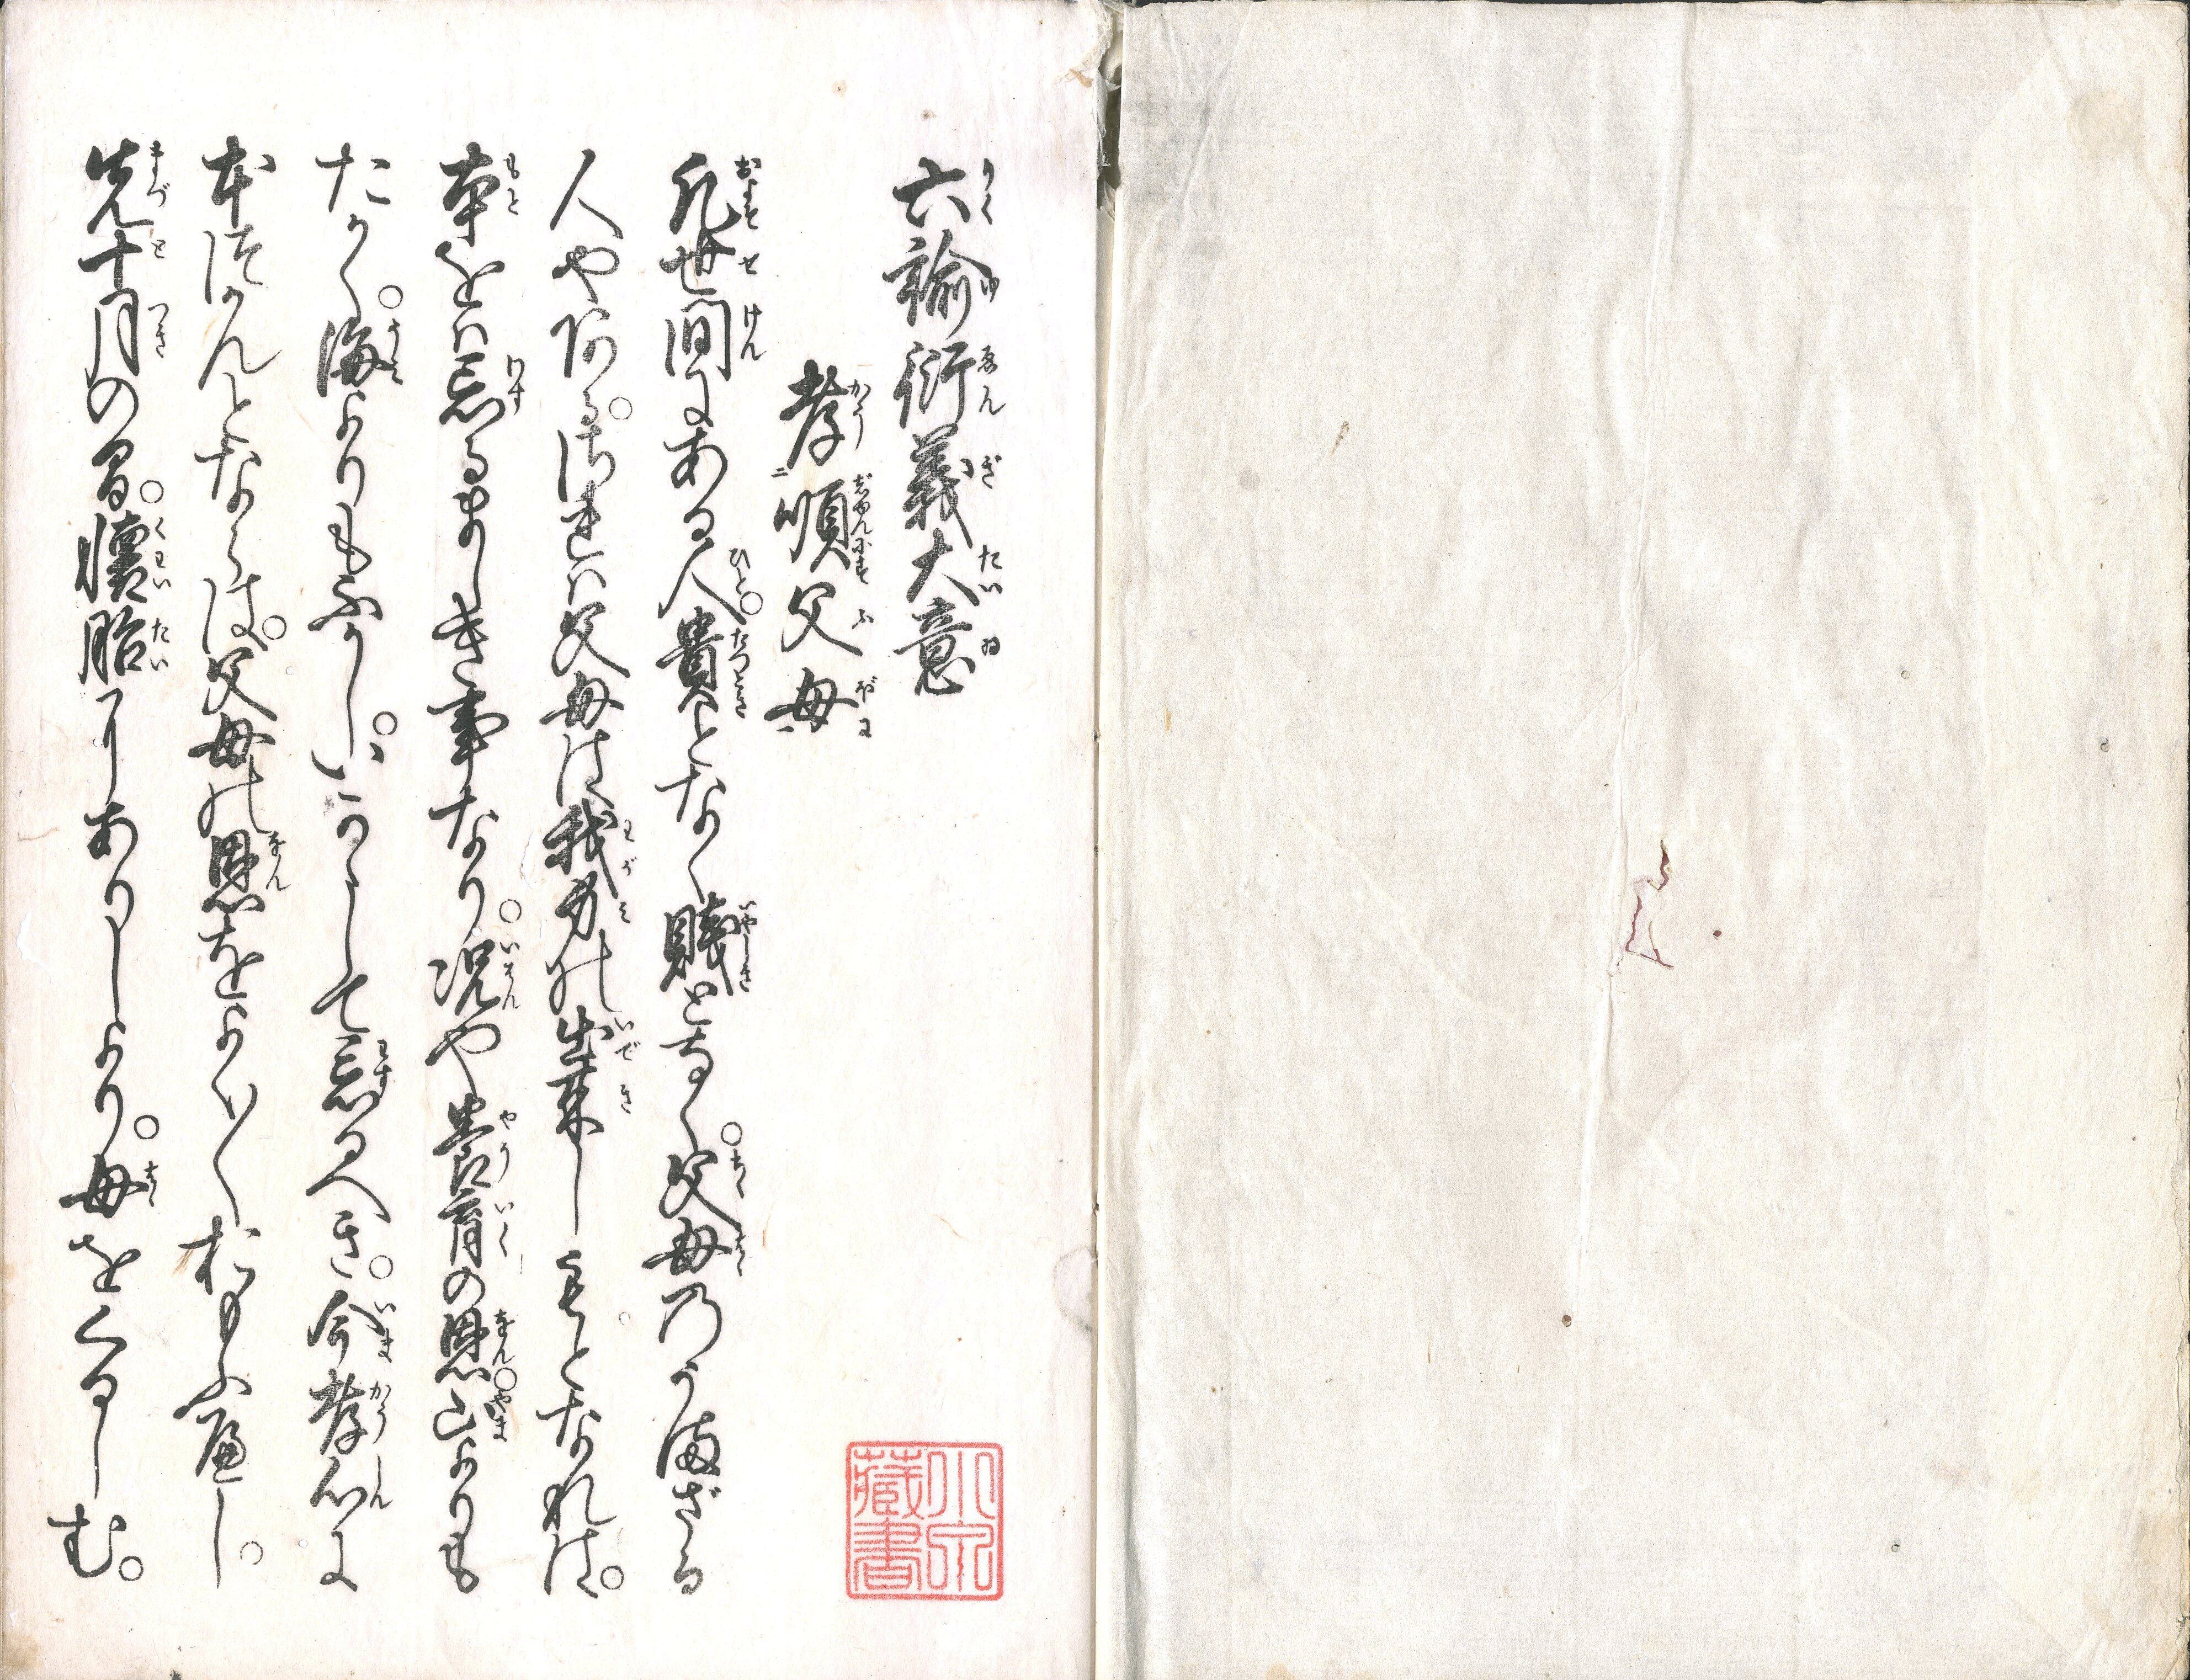 六諭衍義大意
孝順父母
凡世間にある人。貴となく賤となく。父母のうまざる
人やある。されは父母は我身の出来しもとなれは。
本をは忘るましき事なり。况や養育の恩。山よりも
たかく。海よりもふかし。いかゝして忘るへき。今孝心に
本つかんとならは。父母の恩をよく〱おもふ廬し。
先十月の間。懐胎にありしより。母をくるしむ。
小
藏書